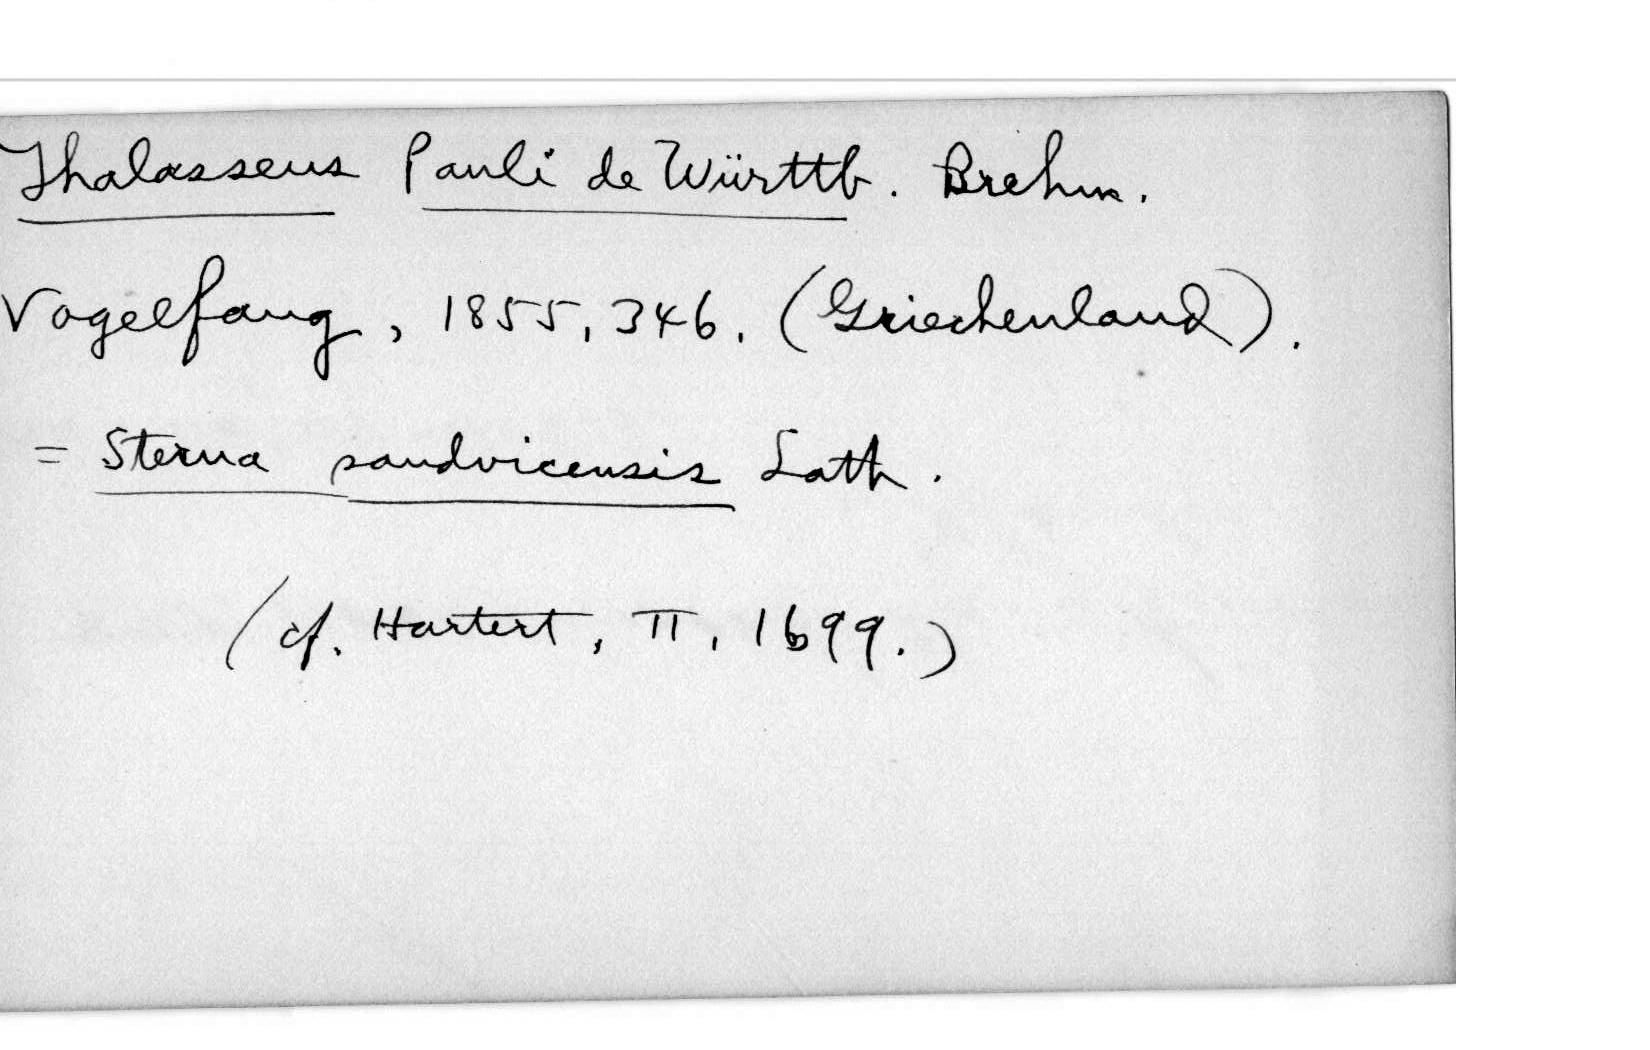 Thalasseus Pauli de Württb. Brehm.
Vogelfang, 1855, 346. (Griechenland).
= Sterna sandvicensis Lath.
(cf. Hartert, II, 1699.)